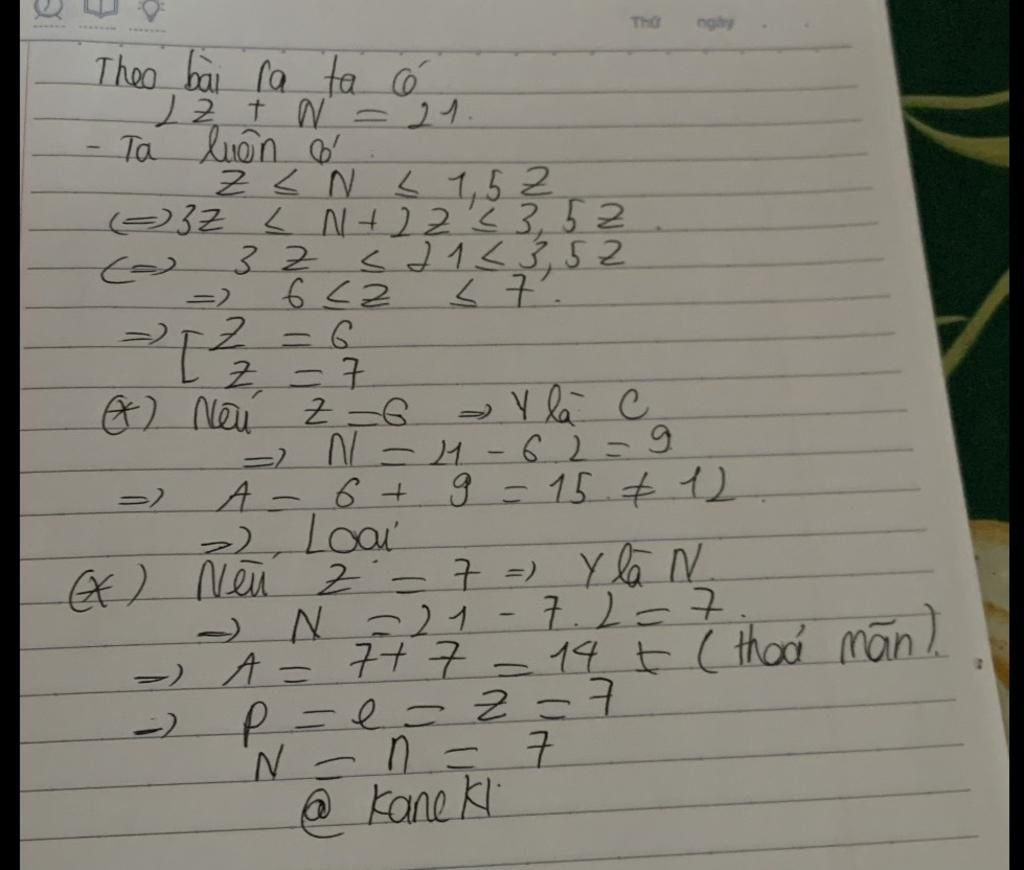 Thứ ngày . .
Theo bài ra ta có
2Z + N = 21.
- Ta luôn có
Z ≤ N ≤ 1,5 Z
(=) 3Z ≤ N + 2Z ≤ 3,5Z.
(=) 3Z ≤ 21 ≤ 3,5Z
=) 6 ≤ Z ≤ 7.
=) [ Z = 6
Z = 7
(*) Nếu Z = 6 => Y là C
=) N = 21 - 6 2 = 9
=) A = 6 + 9 = 15 ≠ 12
=) Loại
(*) Nếu Z = 7 =) Y là N
=) N = 21 - 7.2 = 7.
=) A = 7 + 7 = 14 t (thoả mãn).
=) p = e = Z = 7
N = n = 7
@ KaneKI